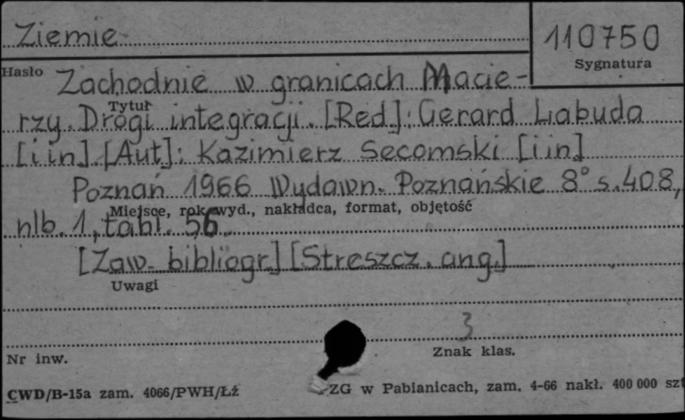 Ziemie
110750
Hasło
Sygnatura
Zachodnie w granicach Macie-
Tytuł
rzy. Drogi integracji. [Red.]: Gerard Labuda
[i in]. [Aut]: Kazimierz Secomski [i in]
Poznań 1966 Wydawn. Poznańskie 8° s. 408,
Miejsce, rok wyd., nakładca, format, objętość
nlb. 1, tabl. 56.
[Zaw. bibliogr.] [Streszcz. ang.]
Uwagi
3
Nr inw.
Znak klas.
CWD/B-15a zam. 4066/PWH/Łż
ZG w Pabianicach, zam. 4-66 nakł. 400 000 szt